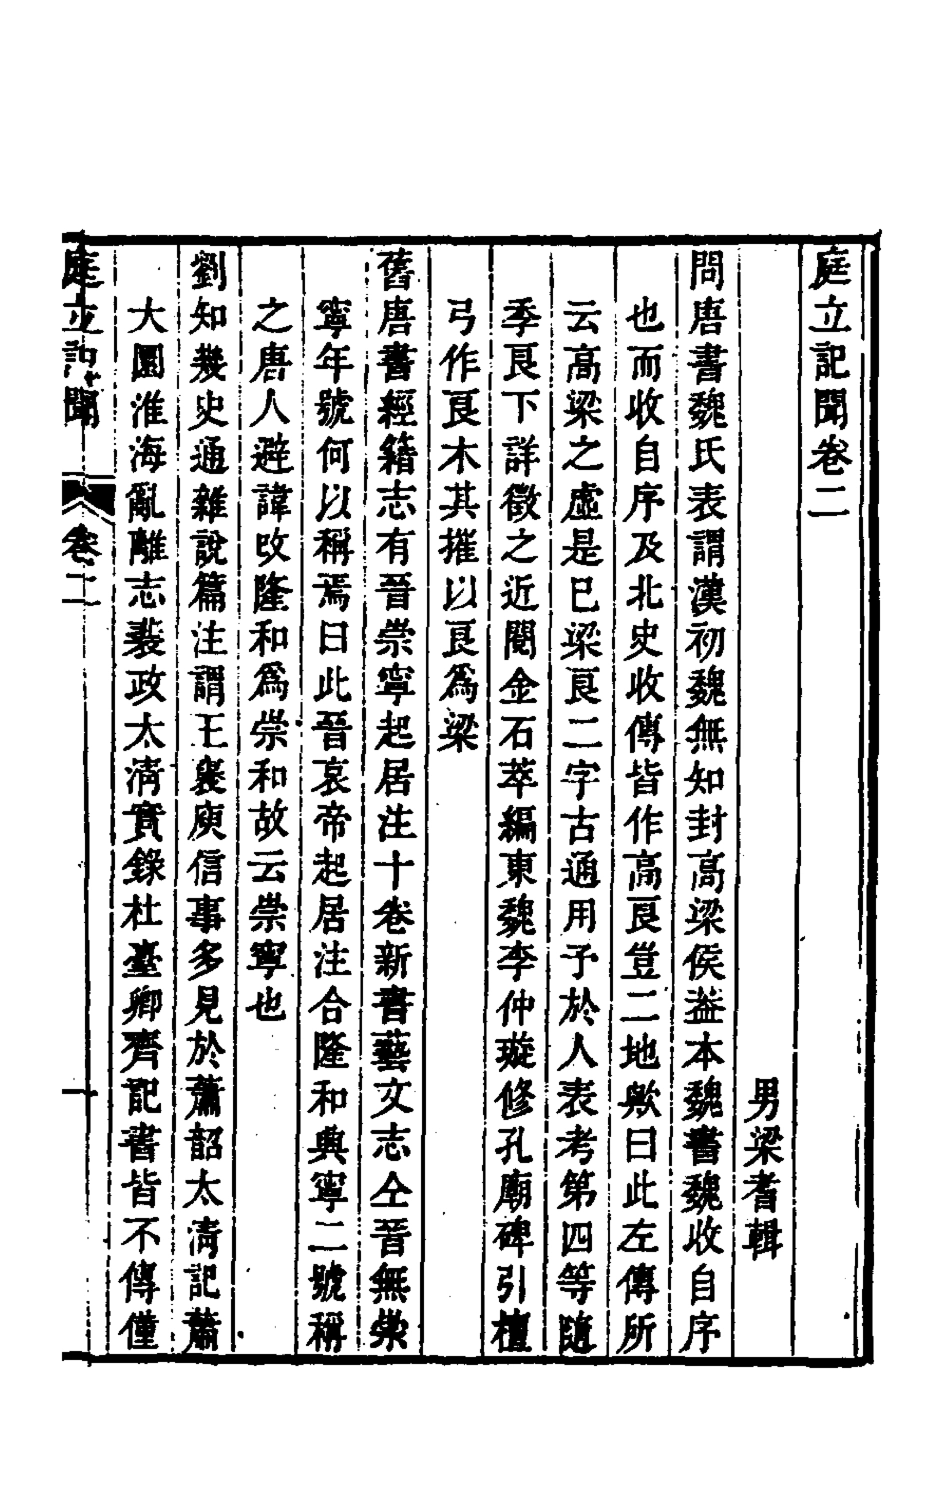 庭立記聞卷二
男梁耆輯
問唐書魏氏表謂漢初魏無知封高梁侯益本魏書魏收自序
也而收自序及北史收傳皆作高良豈二地歟曰此左傳所
云高梁之虛是巳梁良二字古通用予於人表考第四等隨
季良下詳徵之近閱金石萃編東魏李仲璇修孔廟碑引檀
弓作良木其摧以良爲梁
舊唐書經籍志有晉崇寧起居注十卷新書藝文志仝晉無崇
寧年號何以稱焉曰此晉哀帝起居注合隆和興寧二號稱
之唐人避諱改隆和爲崇和故云崇寧也
劉知幾史通雜說篇注謂王襃庾信事多見於蕭韶太淸記蕭
大圜淮海亂離志裴政太淸實錄杜臺卿齊記書皆不傳僅
庭立記聞
卷二
一